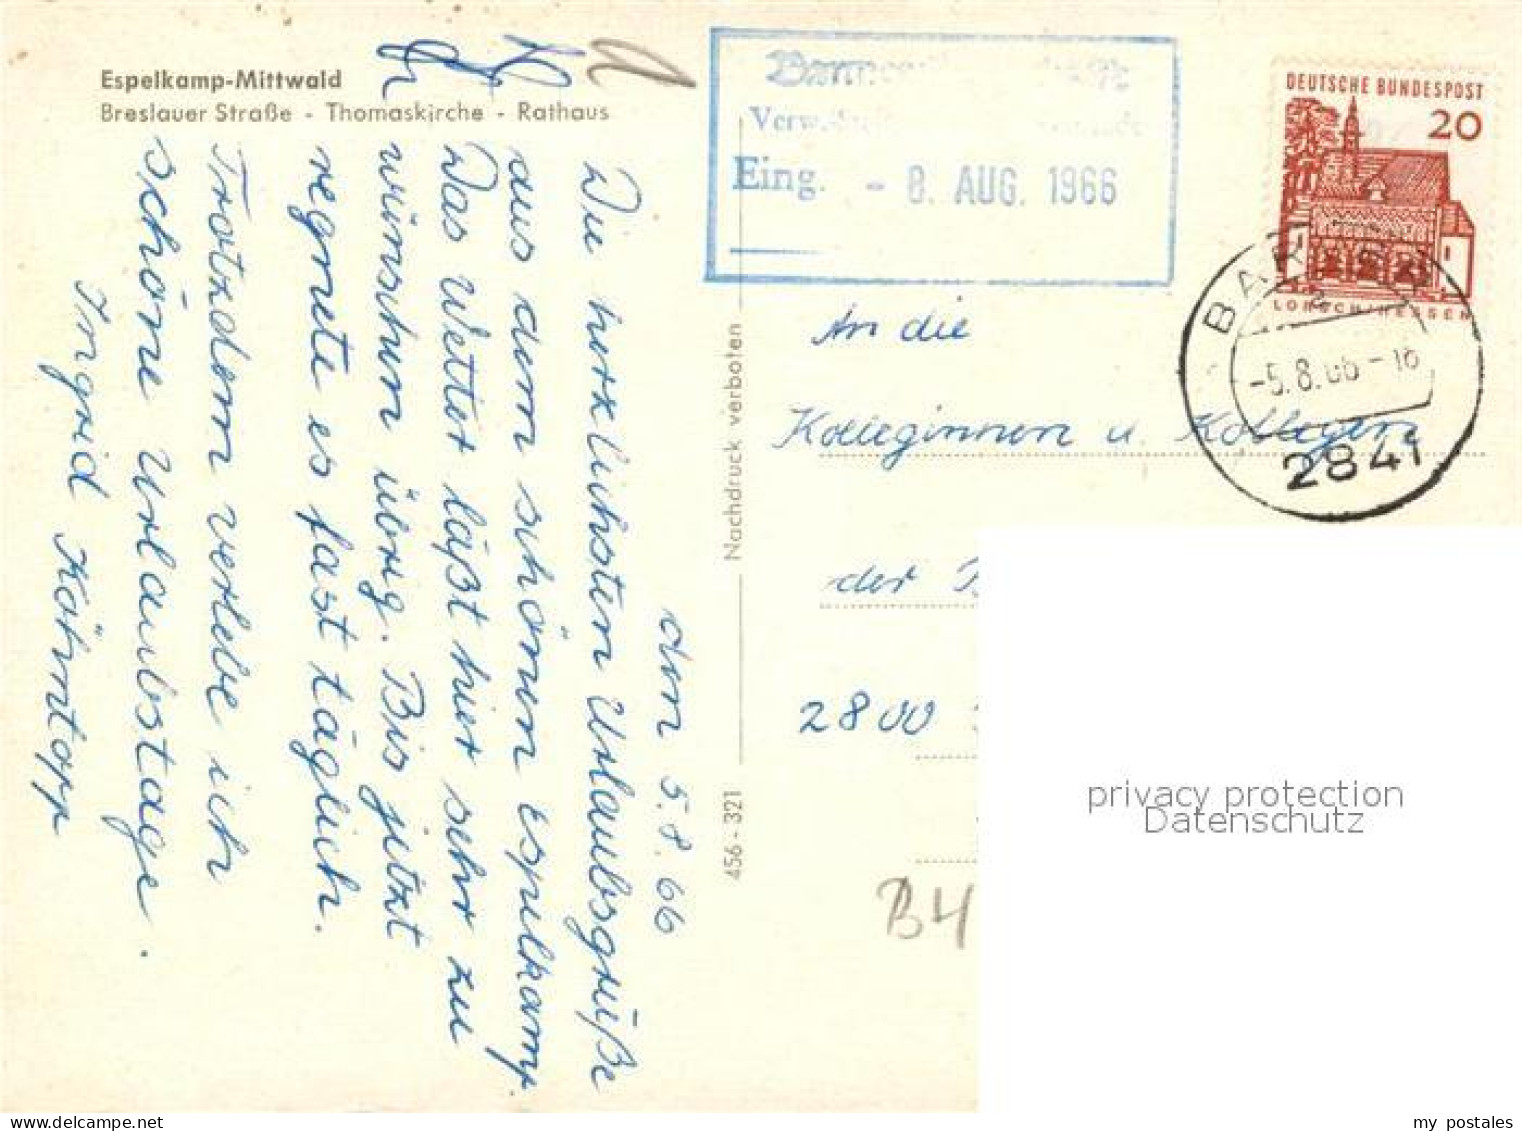 Espelkamp-Mittwald
Breslauer Straße - Thomaskirche - Rathaus
den 5.8.66
Die herzlichsten Urlaubsgrüße
aus dem schönen Espelkamp.
Das Wetter läßt hier sehr zu
wünschen übrig. Bis jetzt
regnete es fast täglich.
Trotzdem verlebe ich
schöne Urlaubstage.
Ingrid Köhntopp
456-321
Nachdruck verboten
Eing. - 8. AUG. 1966
DEUTSCHE BUNDESPOST
20
LORSCH/HESSEN
-5.8.66-18
2841
An die
Kolleginnen u. Kollegen
der
2800
B4
privacy protection
Datenschutz
my postales